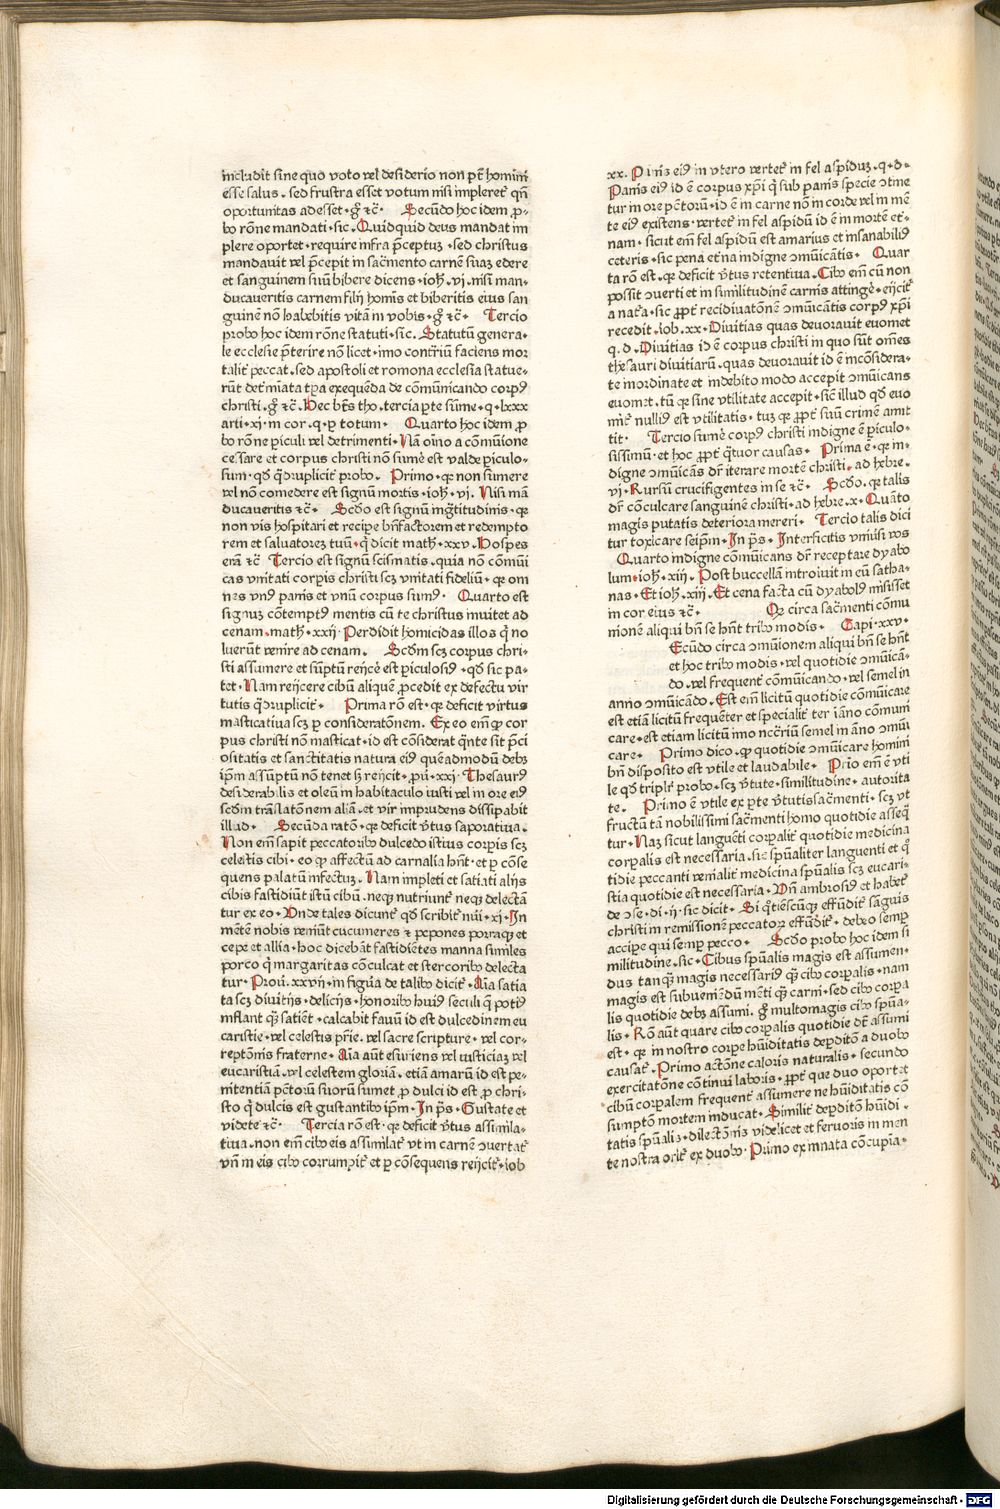 includit sine quo voto vel desiderio non pt̄ homini
esse salus . sed frustra esset votum nisi impleret᷑ qn̄
oportunitas adesset · gͦ ⁊c̄ · Secūdo hoc idem ꝓ-
bo rōne mandati · sic · Quidquid deus mandat im
plere oportet · require infra p̄ceptuꝫ · sed christus
mandauit vel p̄cepit in sac̄mento carnē suaꝫ edere
et sanguinem suū bibere dicens · ioh̄ · vj · nisi man-
ducaueritis carnem filij homīs et biberitis eius san
guinē nō habebitis vitā in vobis · gͦ ⁊c̄ · Tercio
probo hoc idem rōne statuti · sic · Statutū genera-
le ecclesie p̄terire nō licet · imo contr̄iū faciens mor
talit᷑ peccat . sed apostoli et romona ecclesia statue-
rūt det᷑mīata tꝑa exequēda de cōmūnicando corpꝰ
christi . gͦ ⁊c̄ . Hec bt̄s tho . tercia ꝑte sūme · q · lxxx
arti · xj · in cor . q · ꝑ totum · Quarto hoc idem ꝓ
bo rōne ꝑiculi vel detrimenti · Nā oīno a cōmūione
cessare et corpus christi nō sumē est valde ꝑiculo-
sum · qđ q̈druplicit᷑ probo . Primo · qꝛ non sumere
vel nō comedere est signū mortis · ioh̄ · vj . Nisi mā
ducaueritis ⁊c̄ · Scđo est signū īgtitudinis · qꝛ
non vis hospitari et recipe bn̄factorem et redempto
rem et saluatoreꝫ tuū · q dicit math̄ · xxv · Hospes
erā ⁊c̄ Tercio est signū scismatis . quia non cōmūi
cas vnitati corpis christi scꝫ vnitati fideliū · qꝛ om
nes vnꝰ panis et vnū corpus sumꝰ · Quarto est
signuꝫ cōtemptꝰ mentis cū te christus inuitet ad
cenam . math̄ · xxij · Perdidit homicidas illos q nō
luerūt venire ad cenam . Scđm scꝫ corpus chri-
sti assumere et sūptū reijcē est ꝑiculosiꝰ · qđ sic pa-
tet . Nam reijcere cibū aliquē ꝓcedit ex defectu vir
tutis q̈druplicit᷑ · Prima rō est · qꝛ deficit virtus
masticatiua scꝫ ꝑ consideratōnem . Ex eo em̄ ꝙ cor
pus christi nō masticat · id est cōsiderat q̈nte sit p̄ci
ositatis et sanctitatis natura eiꝰ queadmodū debꝫ
ip̄m assūptū nō tenet sꝫ reijcit · ꝓu · xxj · Thesaurꝰ
desiderabilis et oleū in habitaculo iusti vel in ore eiꝰ
scđm trāslatōnem aliā . et vir imprudens dissipabit
illud · Secūda ratō · qꝛ deficit v̄tus saporatiua .
Non em̄ sapit peccatoribꝰ dulcedo istius corpis scꝫ
celestis cibi · eo ꝙ affectū ad carnalia hn̄t · et ꝑ cōse
quens palatū infectuꝫ . Nam impleti et satiati alijs
cibis fastidiūt istū cibū . neqꝫ nutriunt᷑ neqꝫ delectā
tur ex eo · Vnde tales dicunt᷑ qđ scribit᷑ nūi · xj · In
mētē nobis veniūt cucumeres ⁊ pepones porraqꝫ et
cepe et allia · hoc dicebāt fastidiētes manna similes
porco q margaritas cōculcat et stercoribꝰ delecta
tur · Prou . xxvij · in figūa de talibꝰ dicit᷑ · Aīa satia
ta scꝫ diuitijs . delicijs · honoribꝰ huiꝰ seculi q potiꝰ
inflant qꝫ satiēt · calcabit fauū id est dulcedinem eu
caristie · vel celestis pr̄ie . vel sacre scripture · vel cor-
reptōnis fraterne · Aīa aūt esuriens vel iusticiaꝫ vel
eucaristiā . vl celestem gloriā . etiā amarū id est pe-
nitentiā pctōrū suorū sumet ꝓ dulci id est ꝓ chri-
sto q dulcis est gustantibꝰ ip̄m · In ps̄ · Gustate et
videte ⁊c̄ · Tercia rō est · qꝛ deficit v̄tus assimila-
tiua . non em̄ cibꝰ eis assimilat᷑ vt in carnē ꝯuertat᷑
vn̄ in eis cibꝰ corrumpit᷑ et ꝑ cōsequens reijcit᷑ · iob
xx . Panis eiꝰ in vtero vertet᷑ in fel aspiduꝫ . q · d ·
Panis eiꝰ id ē corpus xp̄i q sub panis specie ꝯtine
tur in ore pc̄torū · id ē in carne nō in corde vel in mē
te eiꝰ existens · vertet᷑ in fel aspidū id ē in mortē et᷑-
nam · sicut em̄ fel aspidū est amarius et insanabiliꝰ
ceteris · sic pena et᷑na indigne ꝯmūicātis · Quar
ta rō est . qꝛ deficit v̄tus retentiua . Cibꝰ em̄ cū non
possit ꝯuerti et in similitudinē carnis attingē · eijcit᷑
a nat̄a · sic ꝓpt᷑ recidiuatōnē ꝯmūicātis corpꝰ xp̄i
recedit . iob . xx · Diuitias quas deuorauit euomet
q . d . Diuitias id ē corpus christi in quo sūt om̄es
thesauri diuitiarū . quas deuorauit id ē incōsidera-
te inordinate et indebito modo accepit ꝯmūicans
euomet . tū qꝛ sine vtilitate accepit · sic illud qđ euo
mit᷑ nulliꝰ est vtilitatis · tuꝫ qꝛ ꝓpt᷑ suū crimē amit
tit · Tercio sumē corpꝰ christi indigne ē ꝑiculo-
sissimū · et hoc ꝓpt᷑ q̈tuor causas · Prima ē · qꝛ in-
digne ꝯmūicās dr̄ iterare mortē christi . ad hebre .
vj · Rursū crucifigentes in se ⁊c̄ · Scđo . qꝛ talis
dr̄ cōculcare sanguinē christi · ad hebre . x · Quāto
magis putatis deteriora mereri · Tercio talis dici
tur toxicare seipm̄ · In ps̄ · Interficitis vniūsi vos
Quarto indigne cōmūicans dr̄ receptare dyabo
lum · ioh̄ · xiij . Post buccellā introiuit in eū satha-
nas · Et ioh̄ . xiij . Et cena facta cū dyabolꝰ misisset
in cor eius ⁊c̄ · Qꝛ circa sac̄menti cōmu
nionē aliqui bn̄ se hn̄t tribꝰ modis · Capi · xxv ·
Ecūdo circa ꝯmūionem aliqui bn̄ se hn̄t
et hoc tribꝰ modis · vel quotidie ꝯmūicā-
do . vel frequent᷑ cōmūicando · vel semel in
anno ꝯmūicādo . Est em̄ licitū quotidie cōmūicare
est etiā licitū frequēter et specialit᷑ ter in ano cōmuni
care · est etiam licitū imo nccr̄iū semel in āno ꝯmūi
care · Primo dico . ꝙ quotidie ꝯmūicare homini
bn̄ disposito est vtile et laudabile · Prio em̄ ē vti
le qđ triplr̄ probo . scꝫ v̄tute · similitudine · autorita
te . Primo ē vtile ex ꝑte v̄tutis sac̄menti · scꝫ vt
fructū tā nobilissimi sac̄menti homo quotidie asseq̄
tur · Naꝫ sicut languēti corpalit᷑ quotidie medicina
corpalis est necessaria . sic spūaliter languenti et q̄
tidie peccanti venialit᷑ medicina spūalis scꝫ eucari-
stia quotidie est necessaria · Vn̄ ambrosiꝰ et habet᷑
de ꝯse · di · ij · sic dicit · Si q̄tiescūqꝫ effūdit᷑ sāguis
christi in remissionē peccatoꝝ effūdit᷑ · debeo semꝑ
accipe qui semꝑ pecco · Scđo probo hoc idem si
militudine . sic · Cibus spūalis magis est assumen-
dus tanqꝫ magis necessariꝰ qꝫ cibꝰ corpalis · nam
magis est subueniēdū mēti qꝫ carni · sed cibꝰ corpa
lis quotidie debꝫ assumi . gͦ multomagis cibꝰ spūa-
lis · Rō aūt quare cibꝰ corpalis quotidie dꝫ assumi
est · qꝛ in nostro corpe hūiditatis deꝑditō a duobꝰ
causat᷑ . Primo actōne caloris naturalis · secundo
exercitatōne cōtinui laboris · ꝓpt᷑ que duo oportet
cibū corpalem frequent᷑ assumere ne hūiditatis cō
sumptō mortem inducat . Similit᷑ deꝑditō hūidi-
tatis spūalis . dilectōnis videlicet et feruoris in men
te nostra orit᷑ ex duobꝰ · Primo ex innata cōcupia-
Digitalisierung gefördert durch die Deutsche Forschungsgemeinschaft - DFG